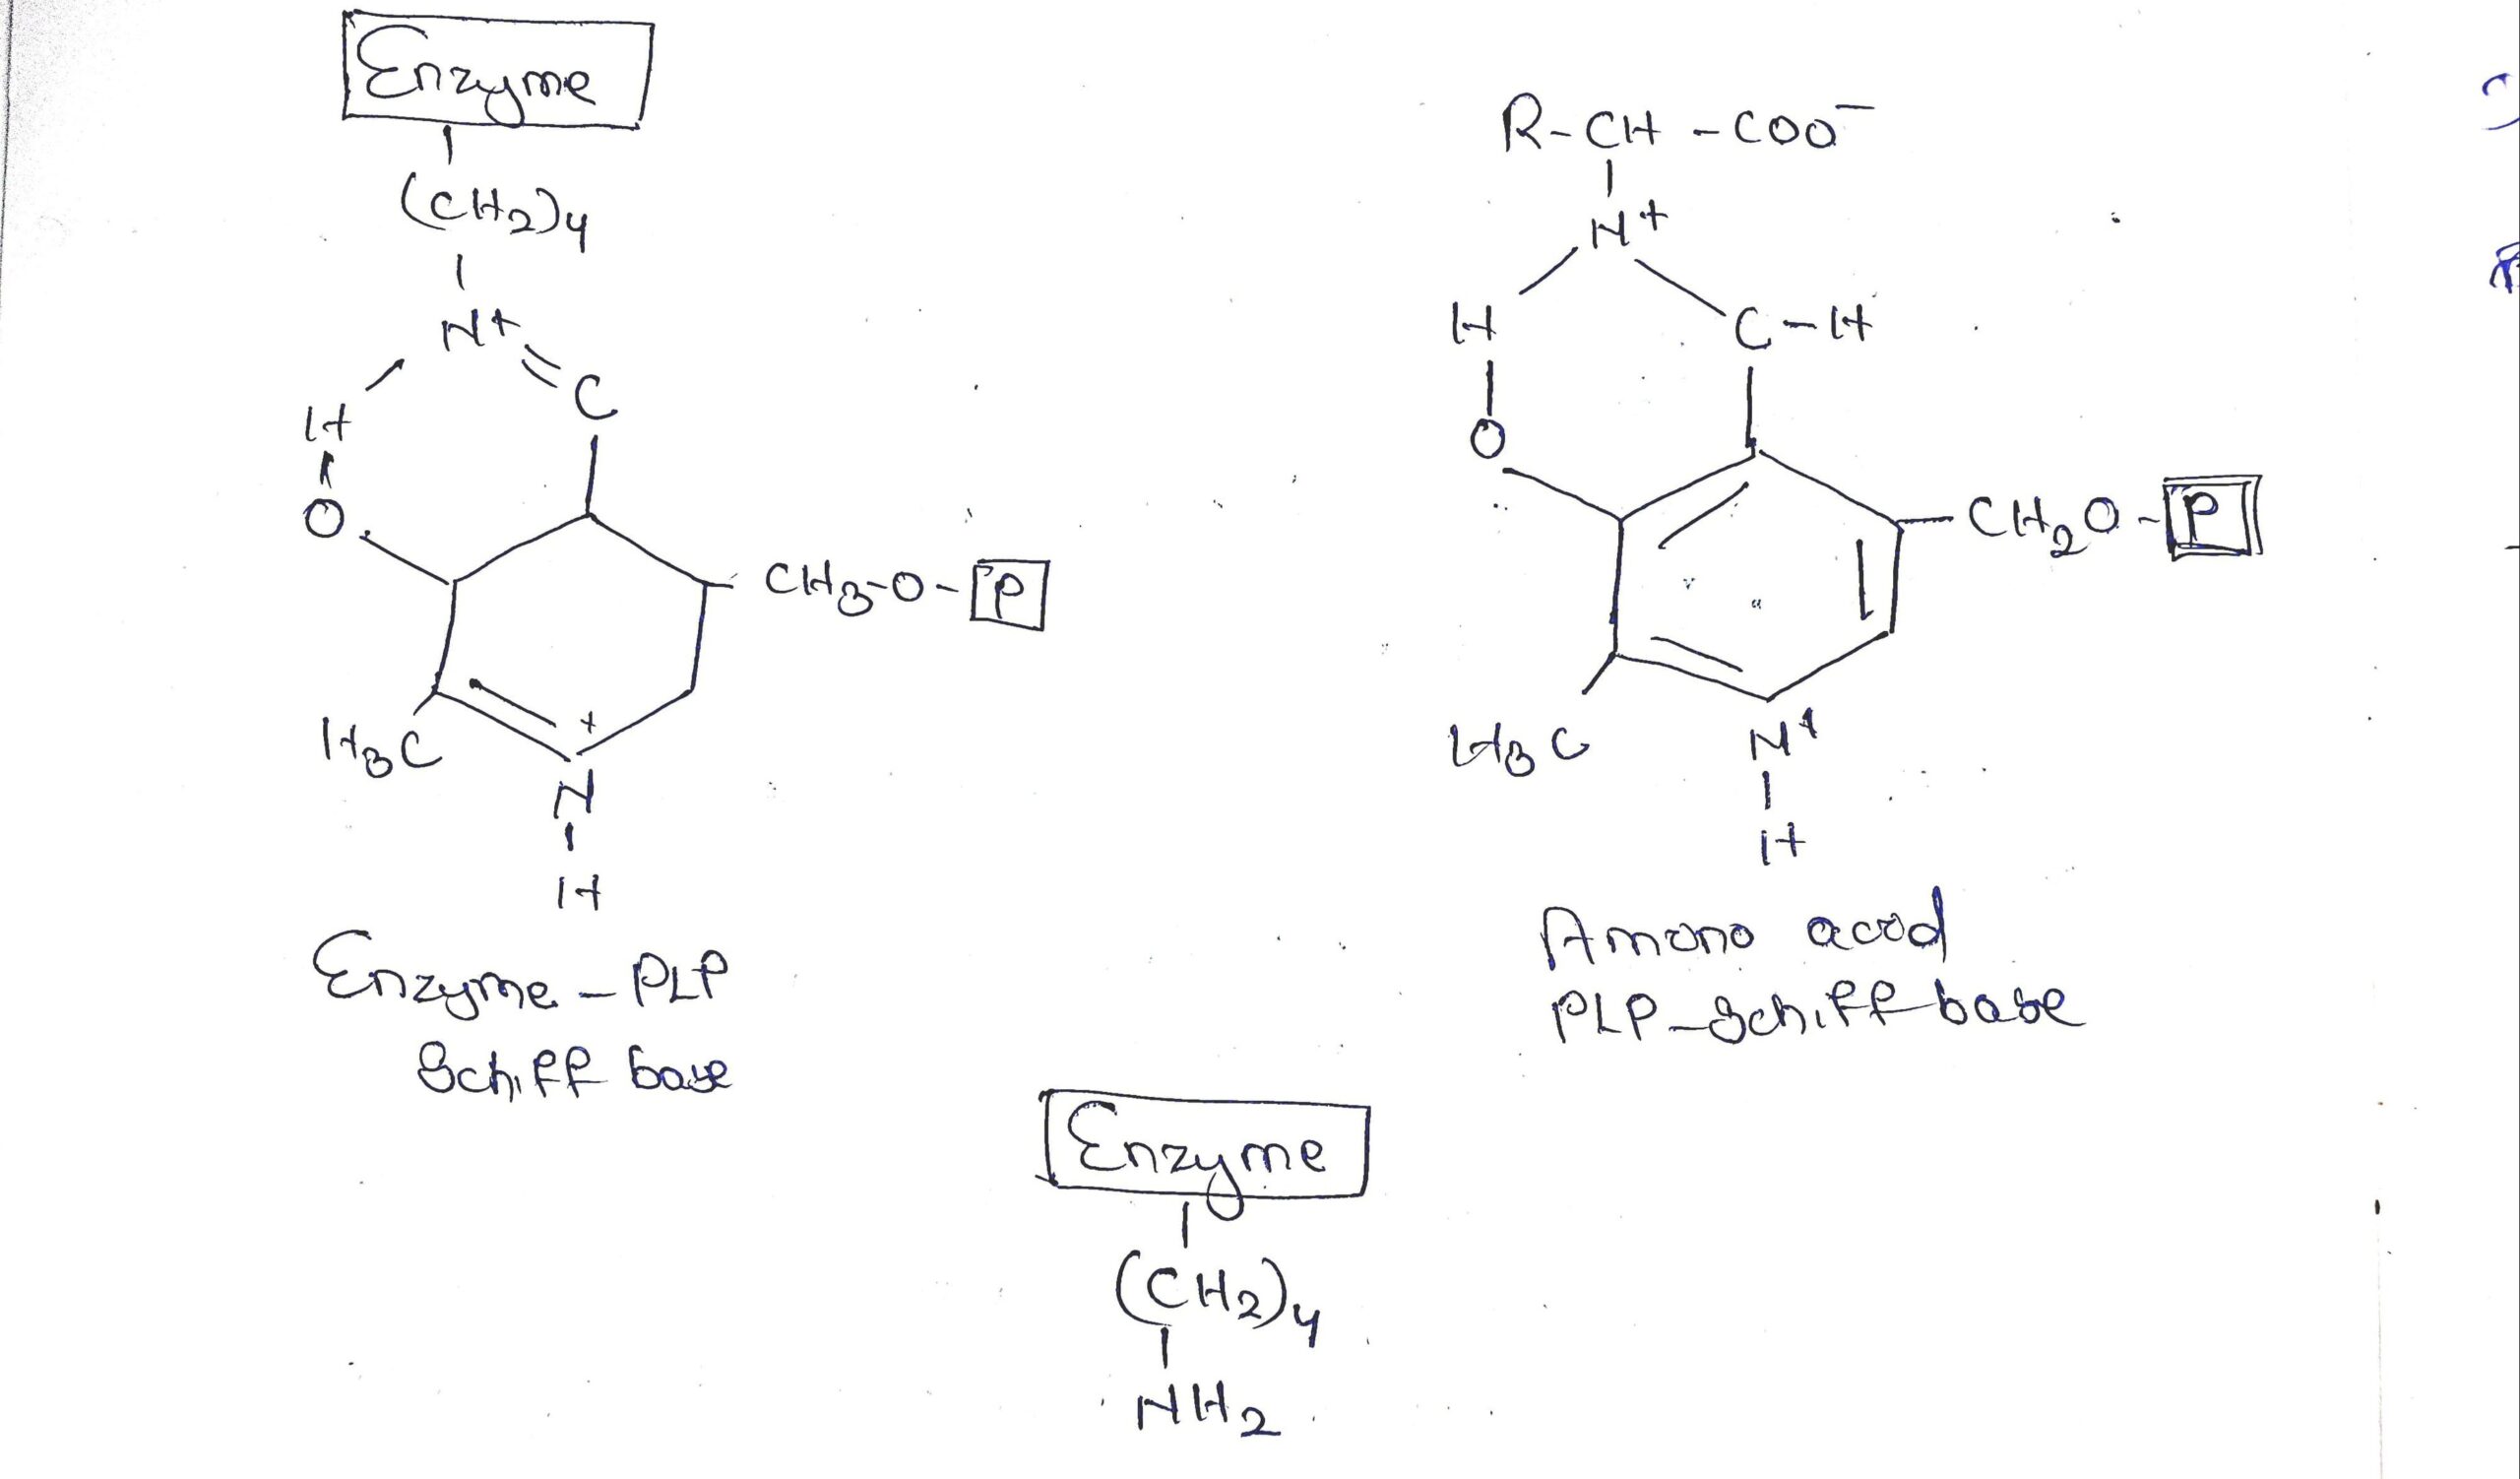 Enzyme
(CH2)4
N+
C
H
O
CH3-O-P
H3C
+
N
H
Enzyme-PLP
Schiff base
R-CH-COO-
N+
H
C-H
O
CH2O-P
H3C
N+
H
Amono acod
PLP-Schiff base
Enzyme
(CH2)4
NH2